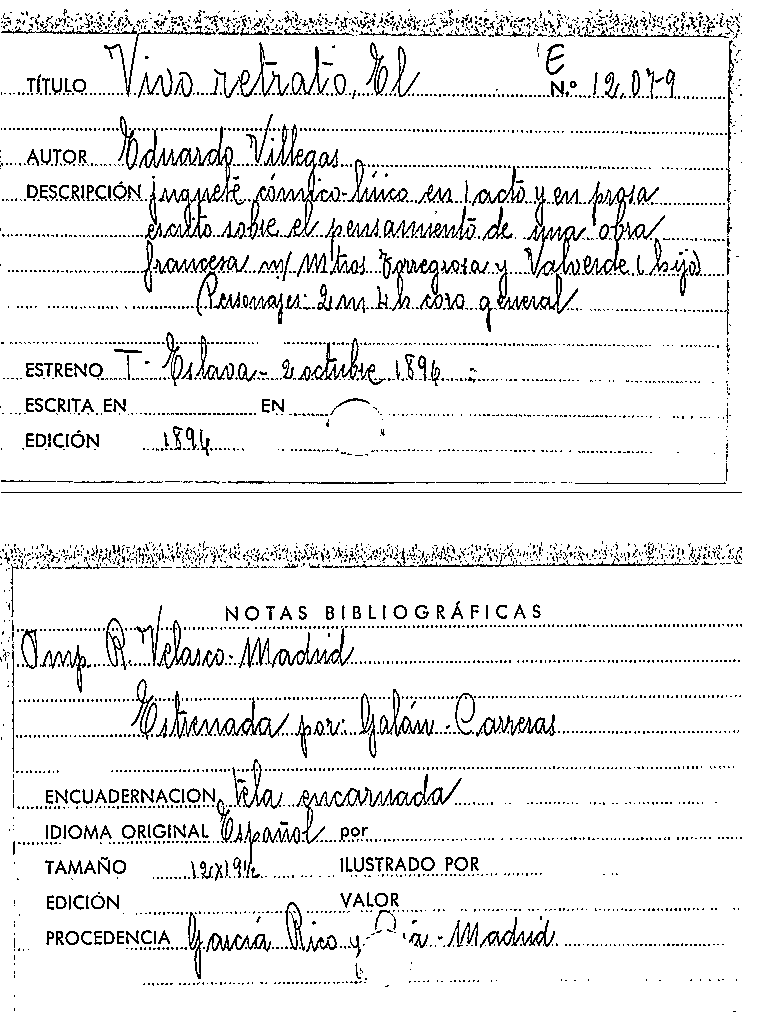 E
TÍTULO Vivo retrato, El N.º 12.079
AUTOR Eduardo Villegas
DESCRIPCIÓN juguete cómico-lírico en 1 acto y en prosa
escrito sobre el pensamiento de una obra
francesa m/ Mtros Torregrosa y Valverde (hijo)
Personajes: 2 m 4 h coro general
ESTRENO T. Eslava - 2 octubre 1894
ESCRITA EN EN
EDICIÓN 1894
NOTAS BIBLIOGRÁFICAS
Imp R. Velasco - Madrid
Estrenada por: Galán - Carreras
ENCUADERNACION tela encarnada
IDIOMA ORIGINAL Español por
TAMAÑO 12x19½ ILUSTRADO POR
EDICIÓN VALOR
PROCEDENCIA García Rico y - Madrid